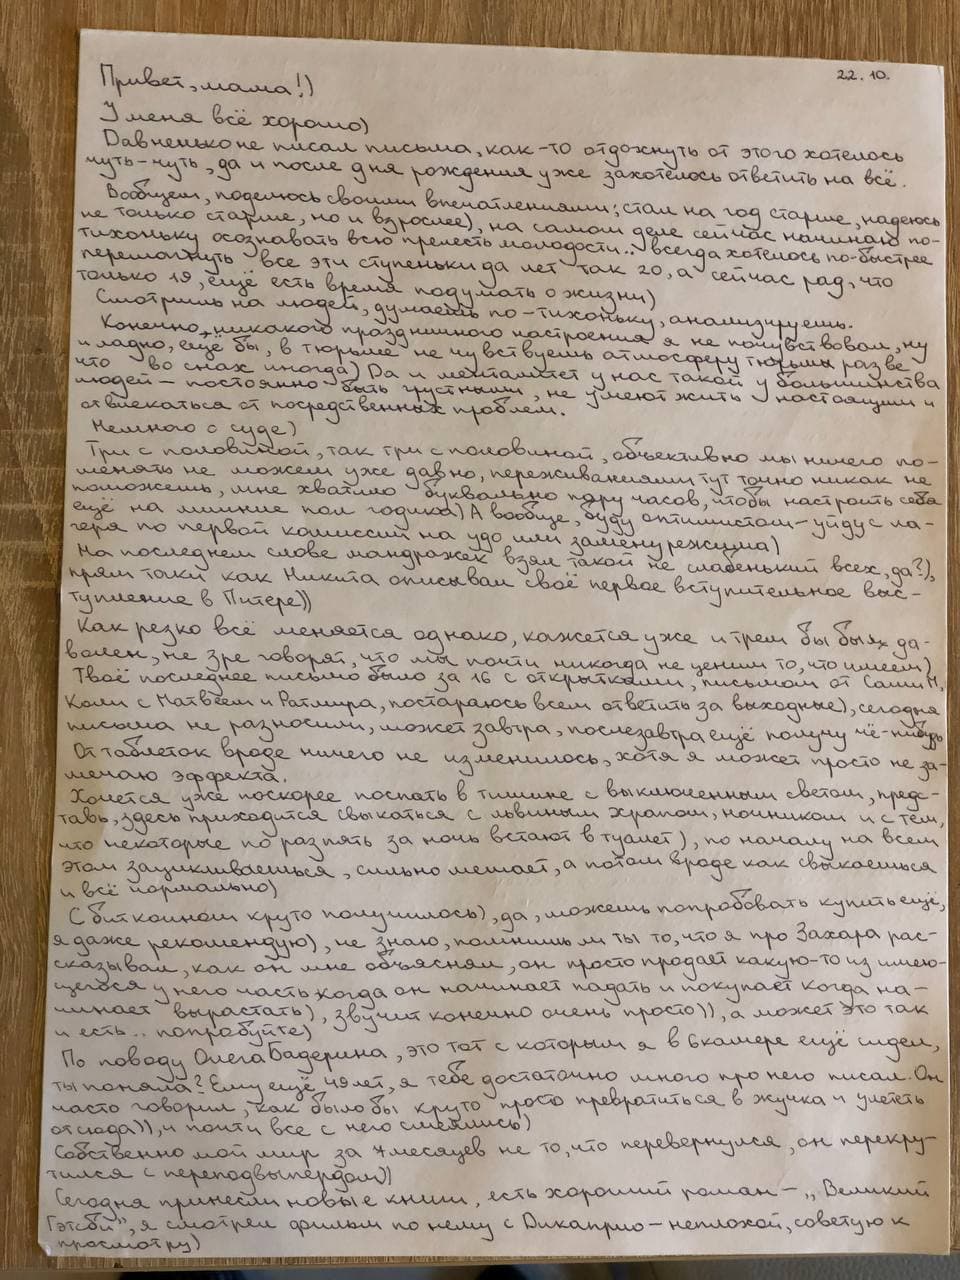 22.10.
Привет, мама!)
У меня всё хорошо)
Давненько не писал письма, как-то отдохнуть от этого хотелось
чуть-чуть, да и после дня рождения уже захотелось ответить на всё.
Вообщем, поделюсь своими впечатлениями; стал на год старше, надеюсь
не только старше, но и взрослее), на самом деле сейчас начинаю по-
тихоньку осознавать всю прелесть молодости.. всегда хотелось по-быстрее
перемахнуть все эти ступеньки да лет так 20, а сейчас рад, что
только 19, ещё есть время подумать о жизни)
Смотришь на людей, думаешь по-тихоньку, анализируешь.
Конечно, никакого праздничного настроения я не почувствовал, ну
и ладно, ещё бы, в тюрьме не чувствуешь атмосферу тюрьмы разве
что во снах иногда) Да и менталитет у нас такой у большинства
людей - постоянно быть грустными, не умеют жить настоящим и
отвлекаться от посредственных проблем.
Немного о суде)
Три с половиной, так три с половиной, объективно мы ничего по-
менять не можем уже давно, переживаниями тут точно никак не
поможешь, мне хватило буквально пару часов, чтобы настроить себя
ещё на лишние пол годика) А вообще, буду оптимистом - уйду с ла-
геря по первой комиссии на удо или замену режима)
На последнем слове мандражек взял такой не слабенький всех, да?),
прям таки как Никита описывал своё первое вступительное выс-
тупление в Питере))
Как резко всё меняется однако, кажется уже и трём бы был да-
волен, не зре говорят, что мы почти никогда не ценим то, что имеем)
Твоё последнее письмо было за 16 с открытками, письмом от Саши М,
Коли с Матвеем и Ратмира, постараюсь всем ответить за выходные), сегодня
письма не разносили, может завтра, послезавтра ещё получу чё-нибудь
От таблеток вроде ничего не изменилось, хотя я может просто не за-
мечаю эффекта.
Хочется уже поскорее поспать в тишине с выключенным светом, предс-
тавь, здесь приходится свыкаться с львиным храпом, ночником и с тем,
что некоторые по раз пять за ночь встают в туалет), по началу на всём
этом зацикливаешься, сильно мешает, а потом вроде как свыкаешься
и всё нормально)
С биткоином круто получилось), да, можешь попробовать купить ещё,
я даже рекомендую), не знаю, помнишь ли ты то, что я про Захара рас-
сказывал, как он мне объяснял, он просто продаёт какую-то из имею-
щегося у него часть когда он начинает падать и покупает когда на-
чинает вырастать), звучит конечно очень просто)), а может это так
и есть.. попробуйте)
По поводу Олега Бадерина, это тот с которым я в 6 камере ещё сидел,
ты поняла? Ему ещё 49 лет, я тебе достаточно много про него писал. Он
часто говорил, как было бы круто просто превратиться в жучка и улететь
отсюда)), и почти все с него смеялись)
Собственно мой мир за 7 месяцев не то, что перевернулся, он перекру-
тился с переподвыпердом))
Сегодня принесли новые книги, есть хороший роман - „Великий
Гэтсби", я смотрел фильм по нему с Дикаприо - неплохой, советую к
просмотру)